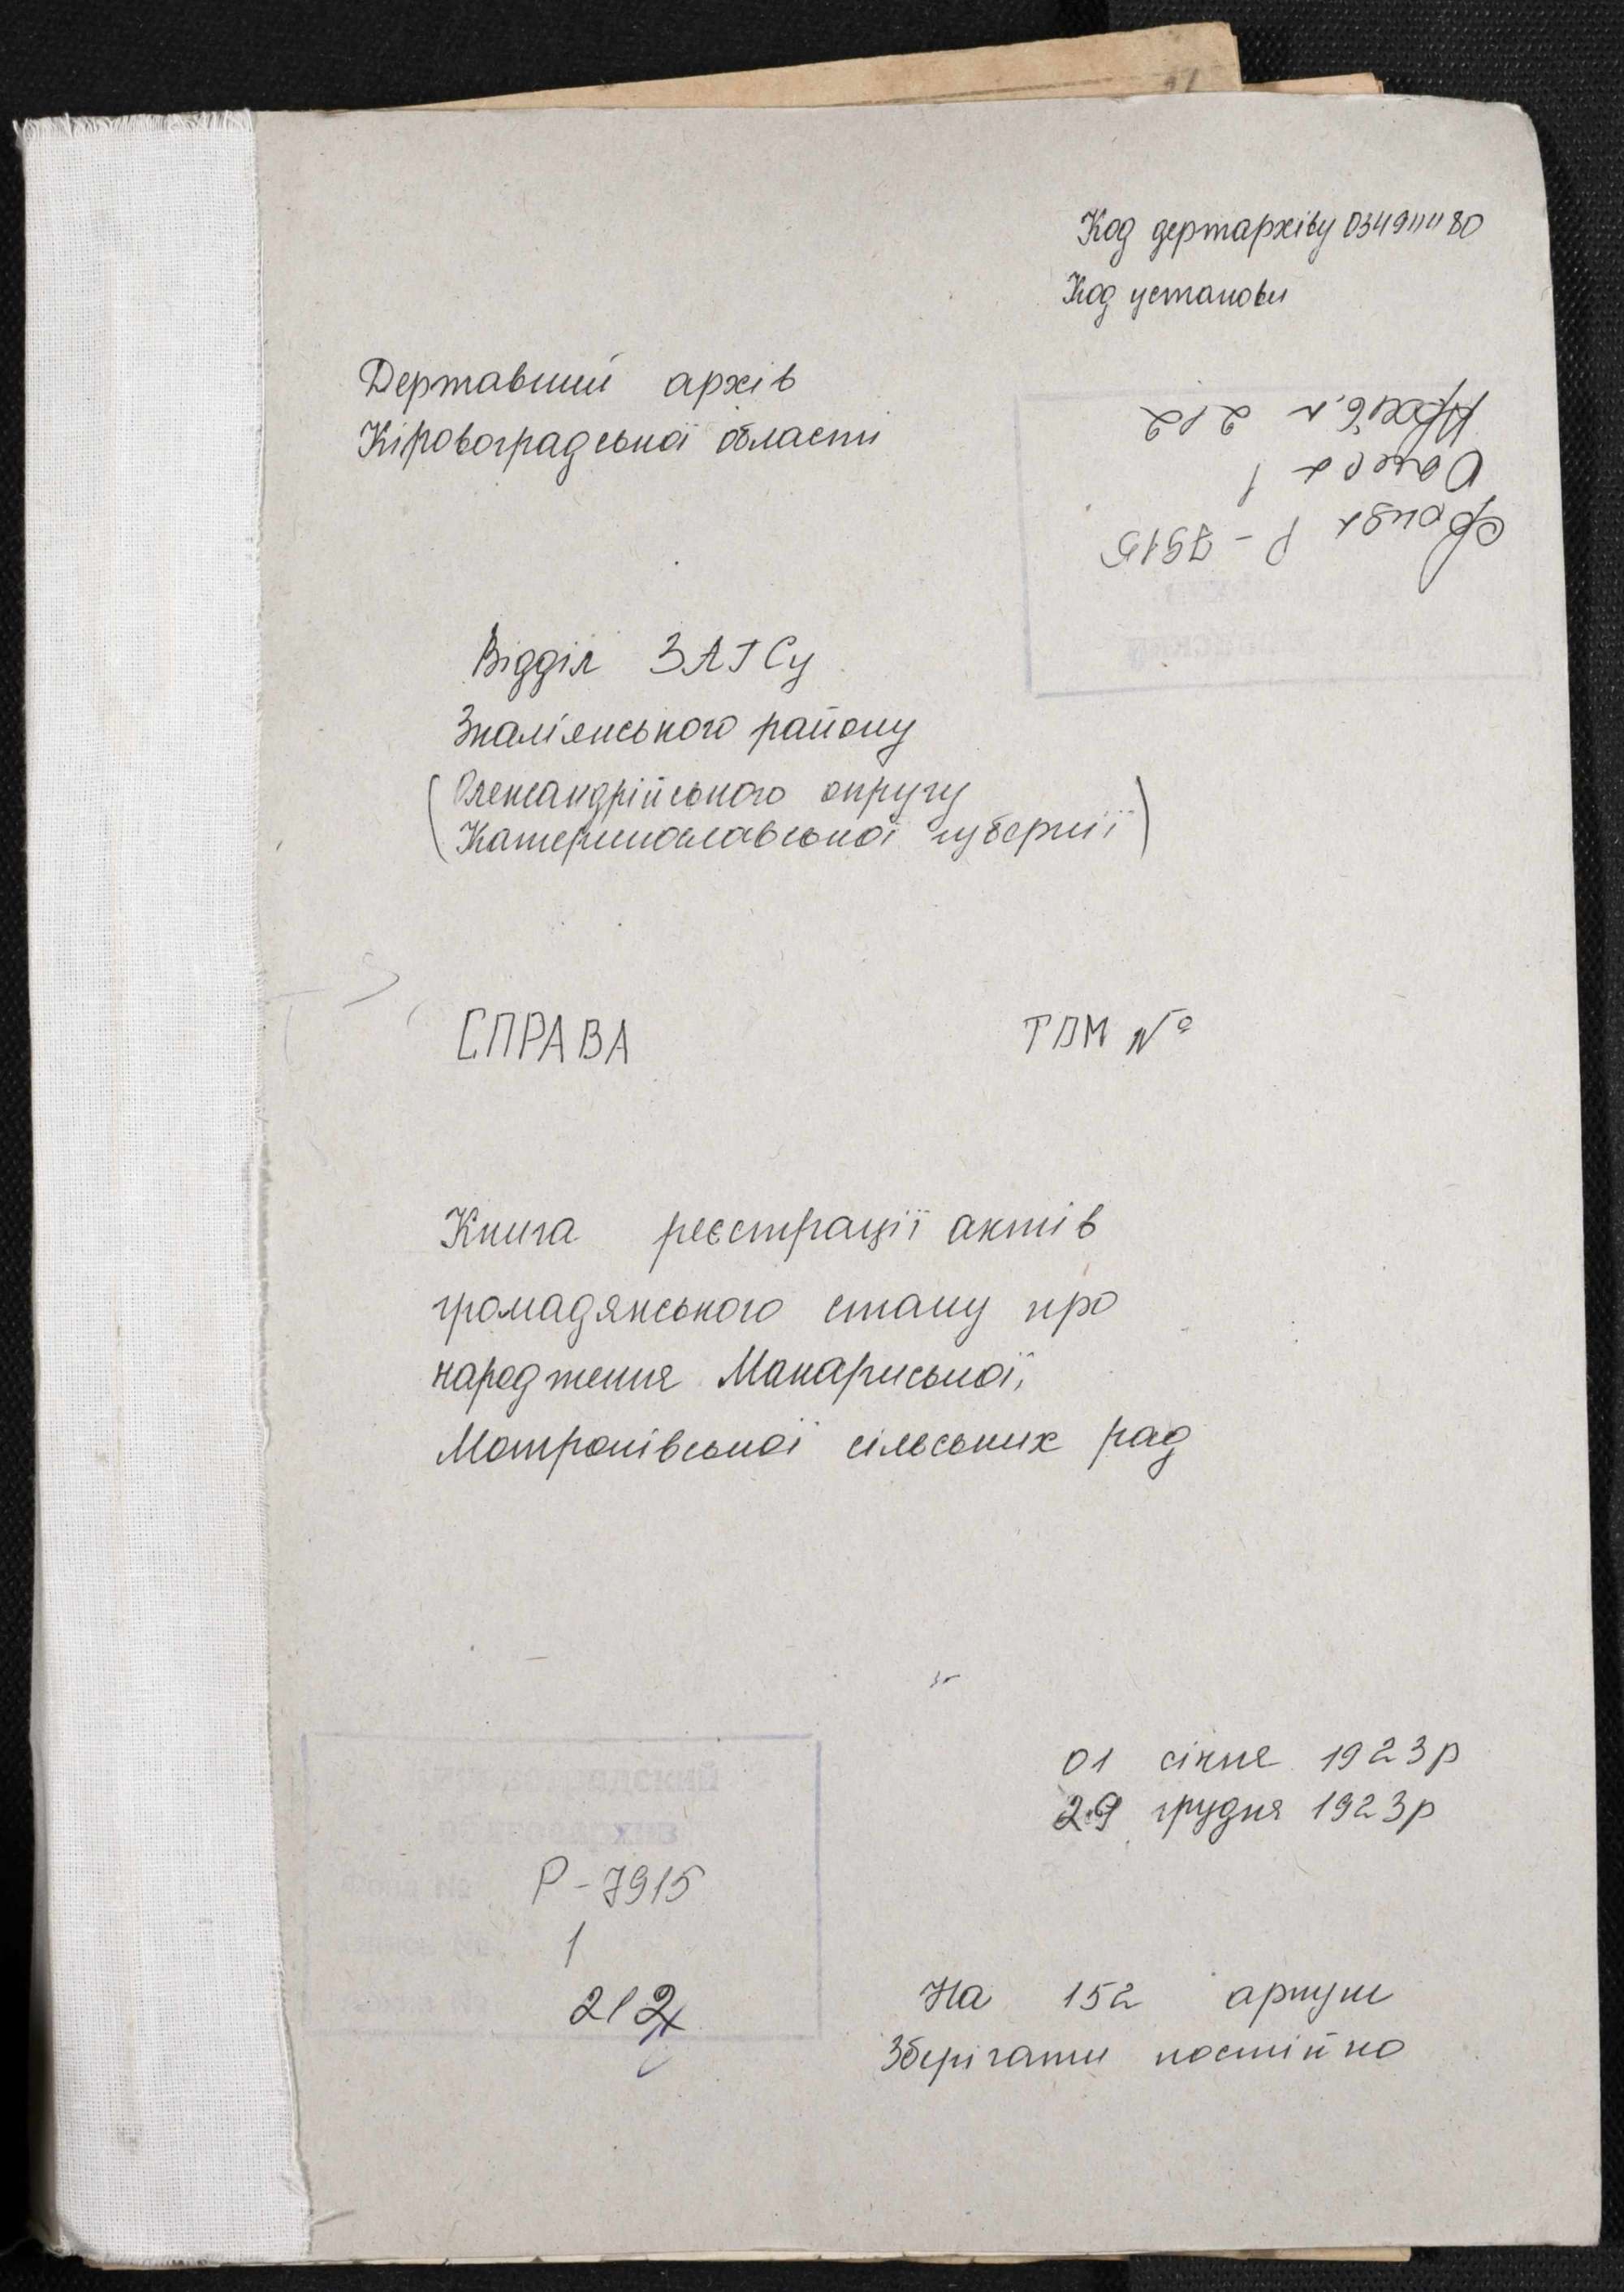 Код держархіву 03491180
Код установи
Державний архів
Кіровоградської області
Фонд Р-7915
Опис 1
212
Відділ ЗАГСу
Знам'янського району
(Олександрійського округу
Катеринославської губернії)
СПРАВА ТОМ №
Книга реєстрації актів
громадянського стану про
народження Макариської,
Мотронівської сільських рад
01 січня 1923р
29 грудня 1923р
Р-7915
1
212
На 152 аркуш
Зберігати постійно